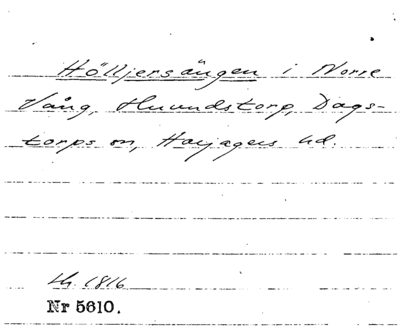 Hölljersängen i Norre
Vång, Huundstorp, Dags-
torps sn, Harjagers hd.
Lh. 1816
Nr 5610.